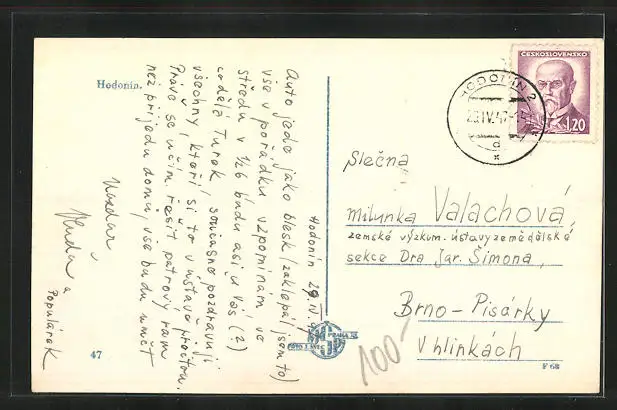 Hodonín.
Hodonín 29.IV.47
Auto jede jako blesk (zaklepal jsem to)
vše v pořádku, vzpomínám ve
středu v ½6 budu asi u vás (?)
co dělá Turek, současně pozdravuji
všechny, kteří si to v ústavě přečtou.
Právě se učím řešit patrový rám
než přijedu domu, vše budu umět
Nazdar
a
Populárek
47
ČESKOSLOVENSKO
1,20
HODONÍN 2
29.IV.47
d
Slečna
Milunka Valachová,
zemské výzkum. ústavy zemědělské
sekce Dra Jar. Šimona,
Brno-Pisárky
V hlinkách
100-
F 68